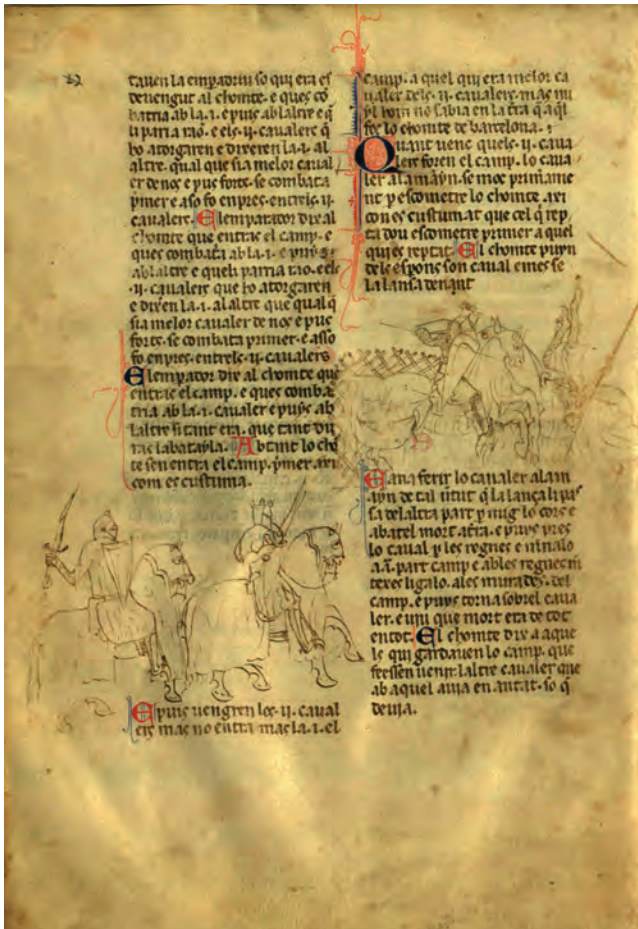 tauen la emperadriu so qui era es
deuengut al chomte. e ques cō
batria ab la .i. e puis ab laltre e q̄
li partia rao. e els .ii. caualers q̄
ho atorgaren e dixeren la .i. al
altre. qual que sia melor caual
er de nos e pus forts. se combata
p̄mer e aso fo enpres. entrels .ii.
caualers. El emperador dix al
chomte que entras el camp. e
ques combata ab la .i. e puys
ab laltre e queli partia rao. e els
.ii. caualers que ho atorgaren
e dixen la .i. al altre que qual q̄
sia melor caualer de nos e pus
forts. se combata primer. e asso
fo enpres. entrels .ii. caualers
El emperador dix al chomte que
entras el camp. e ques comba
tria ab la .i. caualer e puys ab
laltre si tant era. que tant du
ras la batayla. Abtant lo chō
te sen entra el camp. p̄mer axi
com es custuma.
E puis uengren los .ii. caual
ers mas no entra mas la .i. el
camp. a quel qui era melor ca
ualer dels .ii. caualers. mas nu
yl hom no sabia en la t̄ra q̄ aq̄l
fos lo chomte de barcelona.
Quant uenc quels .ii. caua
lers foren el camp. lo caua
ler alamayn. se moc primame
nt p escometre lo chomte. axi
con es custumat que cel q̄ rep
ta deu escometre primer a quel
qui es reptat. El chomte puyn
dels espons son caual e mes se
la lansa denant
E ana ferir lo caualer alam
ayn de tal uirtut q̄ la lança li pas
sa delaltra part p mig lo cors e
abatel mort a t̄ra. e puys pres
lo caual p les regnes e menalo
a .i. part camp e ables regnes m̄
texes ligalo. ales murades. del
camp. e puys torna sobrel caua
ler. e uiu que mort era de tot
en tot. El chomte dix a aque
ls qui gardauen lo camp. que
feessen uenir laltre caualer que
ab aquel auia en antat. so q̄
deuia.